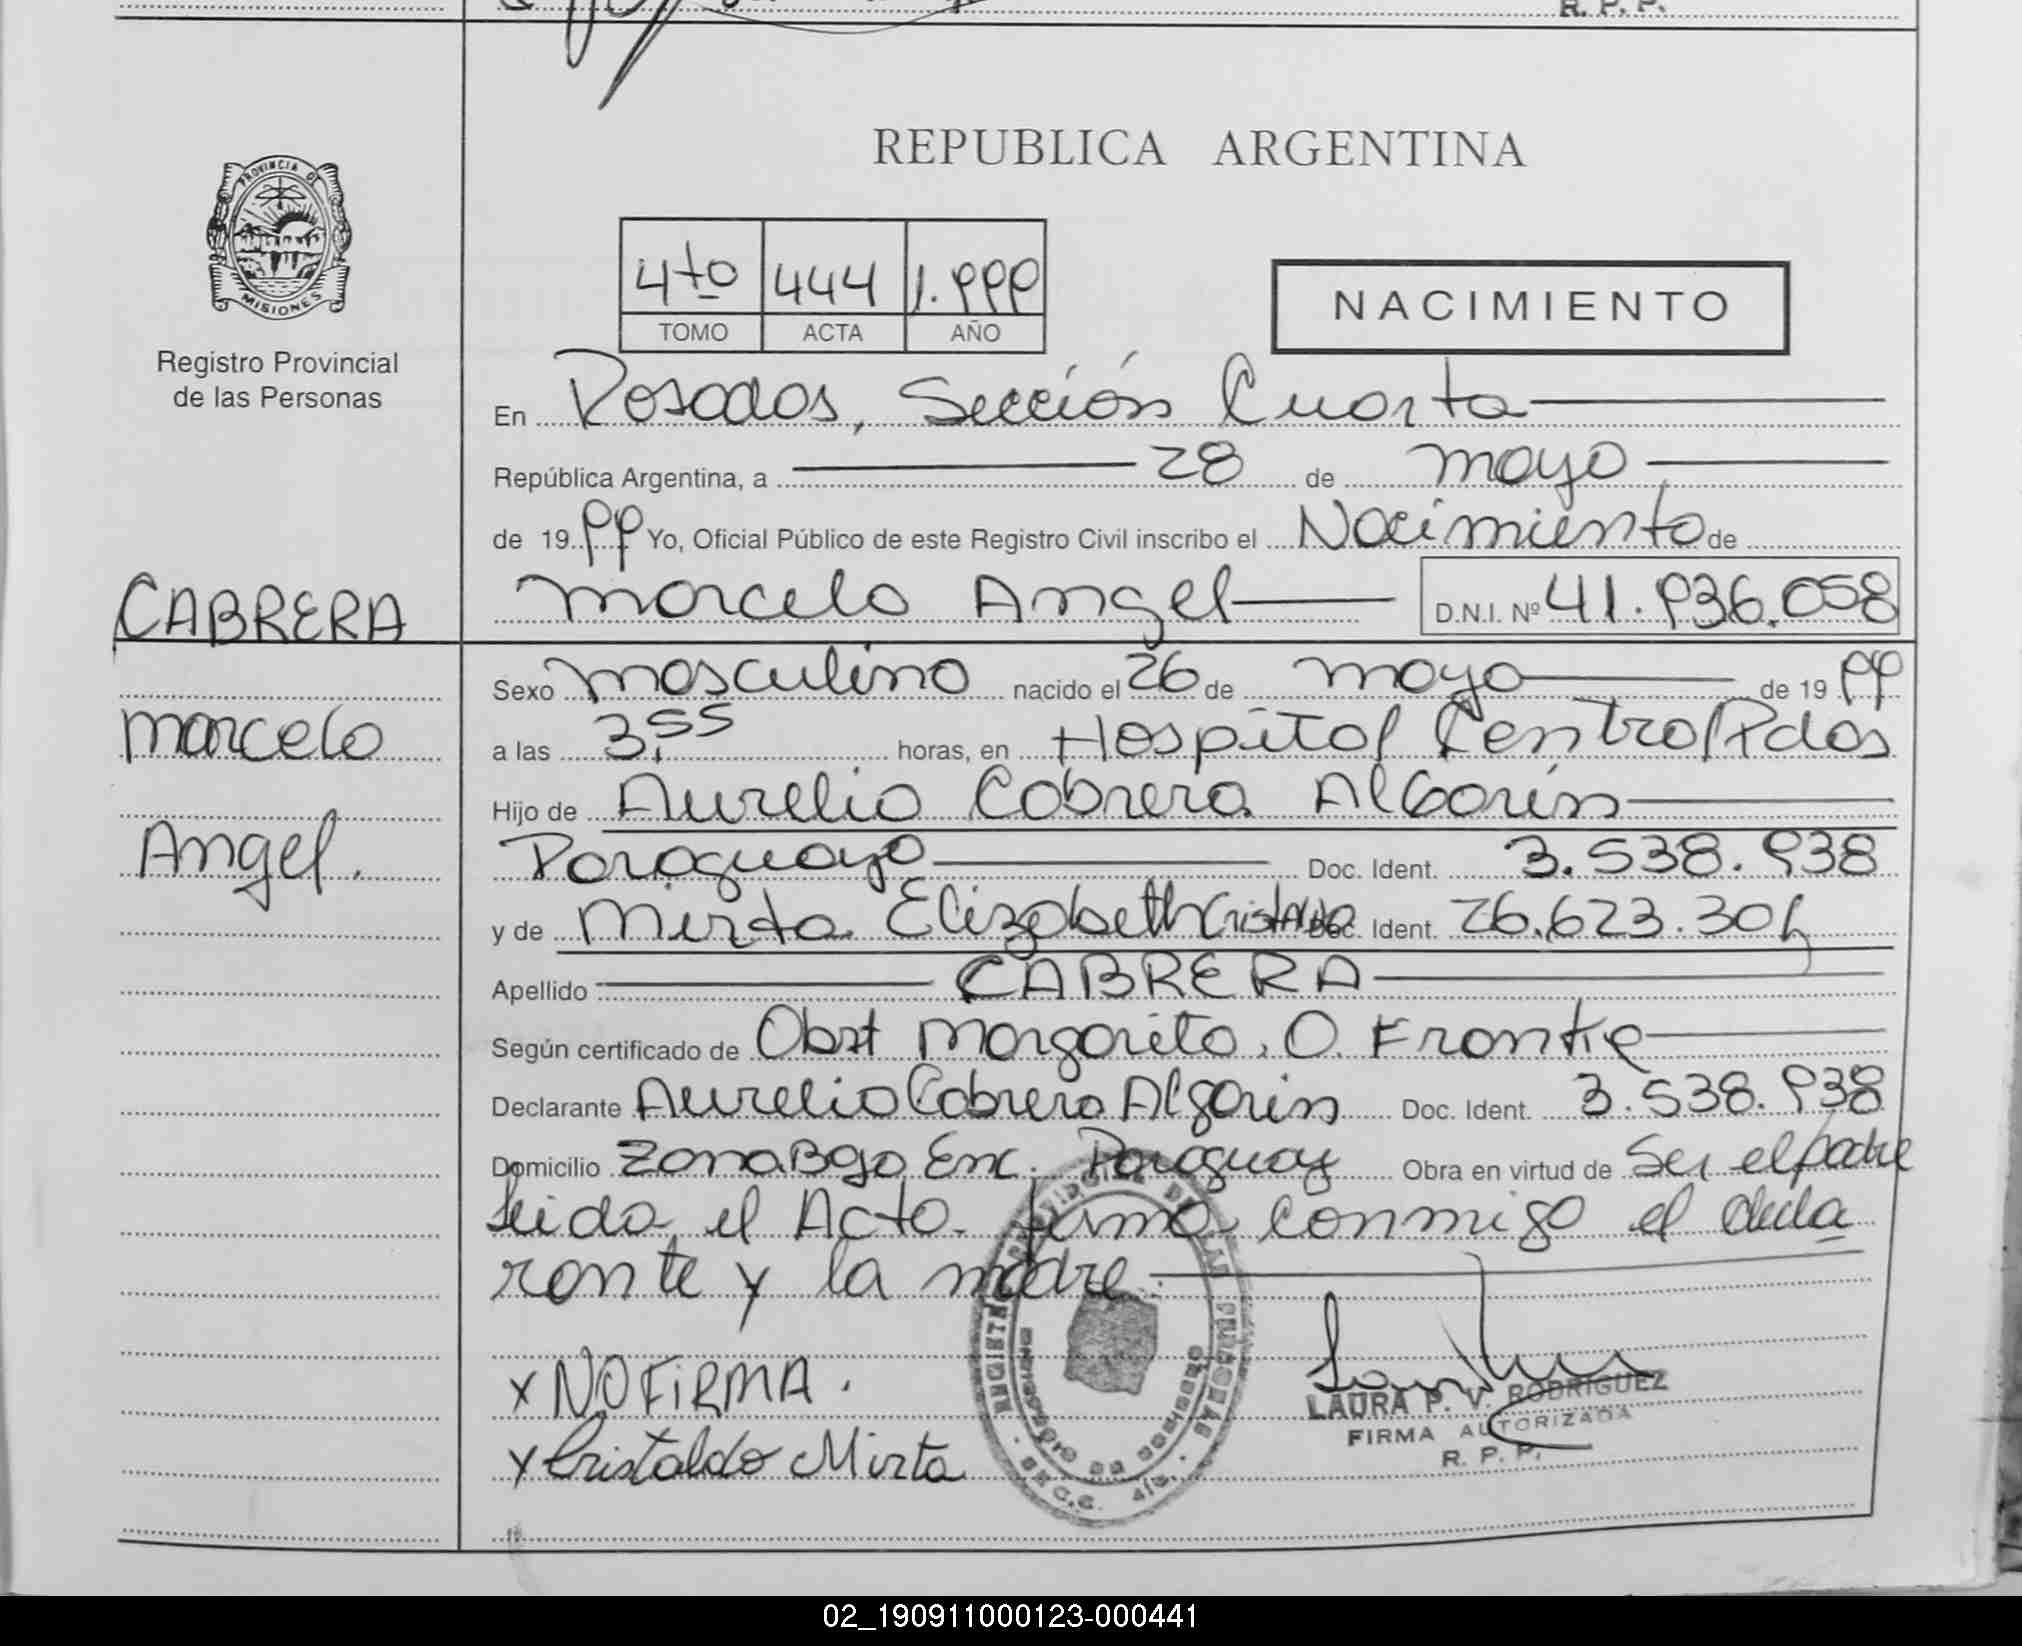 R. P. P.
REPUBLICA ARGENTINA
PROVINCIA DE
MISIONES
Registro Provincial
de las Personas
4to 444 1.999
TOMO ACTA AÑO
NACIMIENTO
En Posadas, Sección Cuarta
República Argentina, a 28 de mayo
de 19 99 Yo, Oficial Público de este Registro Civil inscribo el Nacimiento de
CABRERA
Marcelo Angel D.N.I. Nº 41.936.058
Sexo Masculino nacido el 26 de mayo de 19 99
Marcelo
a las 3,55 horas, en Hospital Central Pdas
Hijo de Aurelio Cabrera Algarin
Angel.
Paraguayo Doc. Ident. 3.538.938
y de Mirta Elizabeth Cristaldo Doc. Ident. 26.623.301
Apellido CABRERA
Según certificado de Obst Margarita. O. Franke
Declarante Aurelio Cabrera Algarin Doc. Ident. 3.538.938
Domicilio Zona Baja Enc. Paraguay Obra en virtud de Ser el padre
Leida el Acta. firma conmigo el decla
rante y la madre.
x NO FIRMA.
x Cristaldo Mirta
LAURA P. V. RODRIGUEZ
FIRMA AUTORIZADA
R. P. P.
02_190911000123-000441